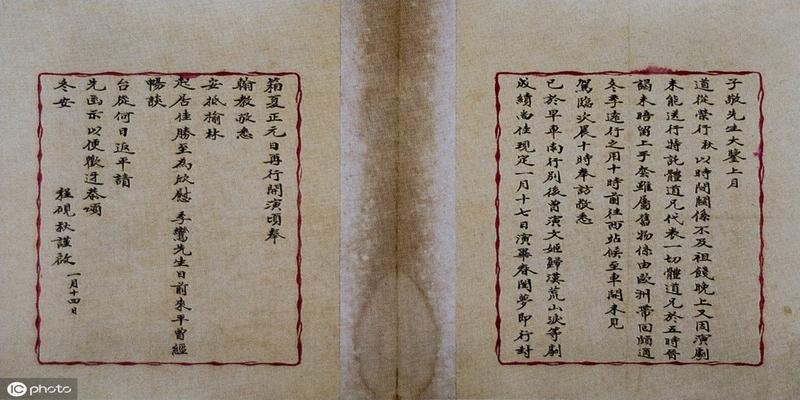 子敬先生大鑒上月
道從榮行秋以時間關係不及祖餞晚上又因演劇
未能送行特託體道兄代表一切體道兄於五時晉
謁未晤留上手套雖屬舊物係由歐洲帶回頗適
冬季遠行之用十時前往西站候至車開未見
駕臨次晨十時奉訪敬悉
已於早車南行別後曾演文姬歸漢荒山淚等劇
成績尚佳現定一月十七日演畢春閨夢即行封
箱夏正元日再行開演頃奉
翰教敬悉
安抵榆林
起居佳勝至為欣慰季鸞先生日前來平曾經
暢談
台從何日返平請
先函示以便歡迓恭頌
冬安
程硯秋謹啟 一月十四日
iC photo